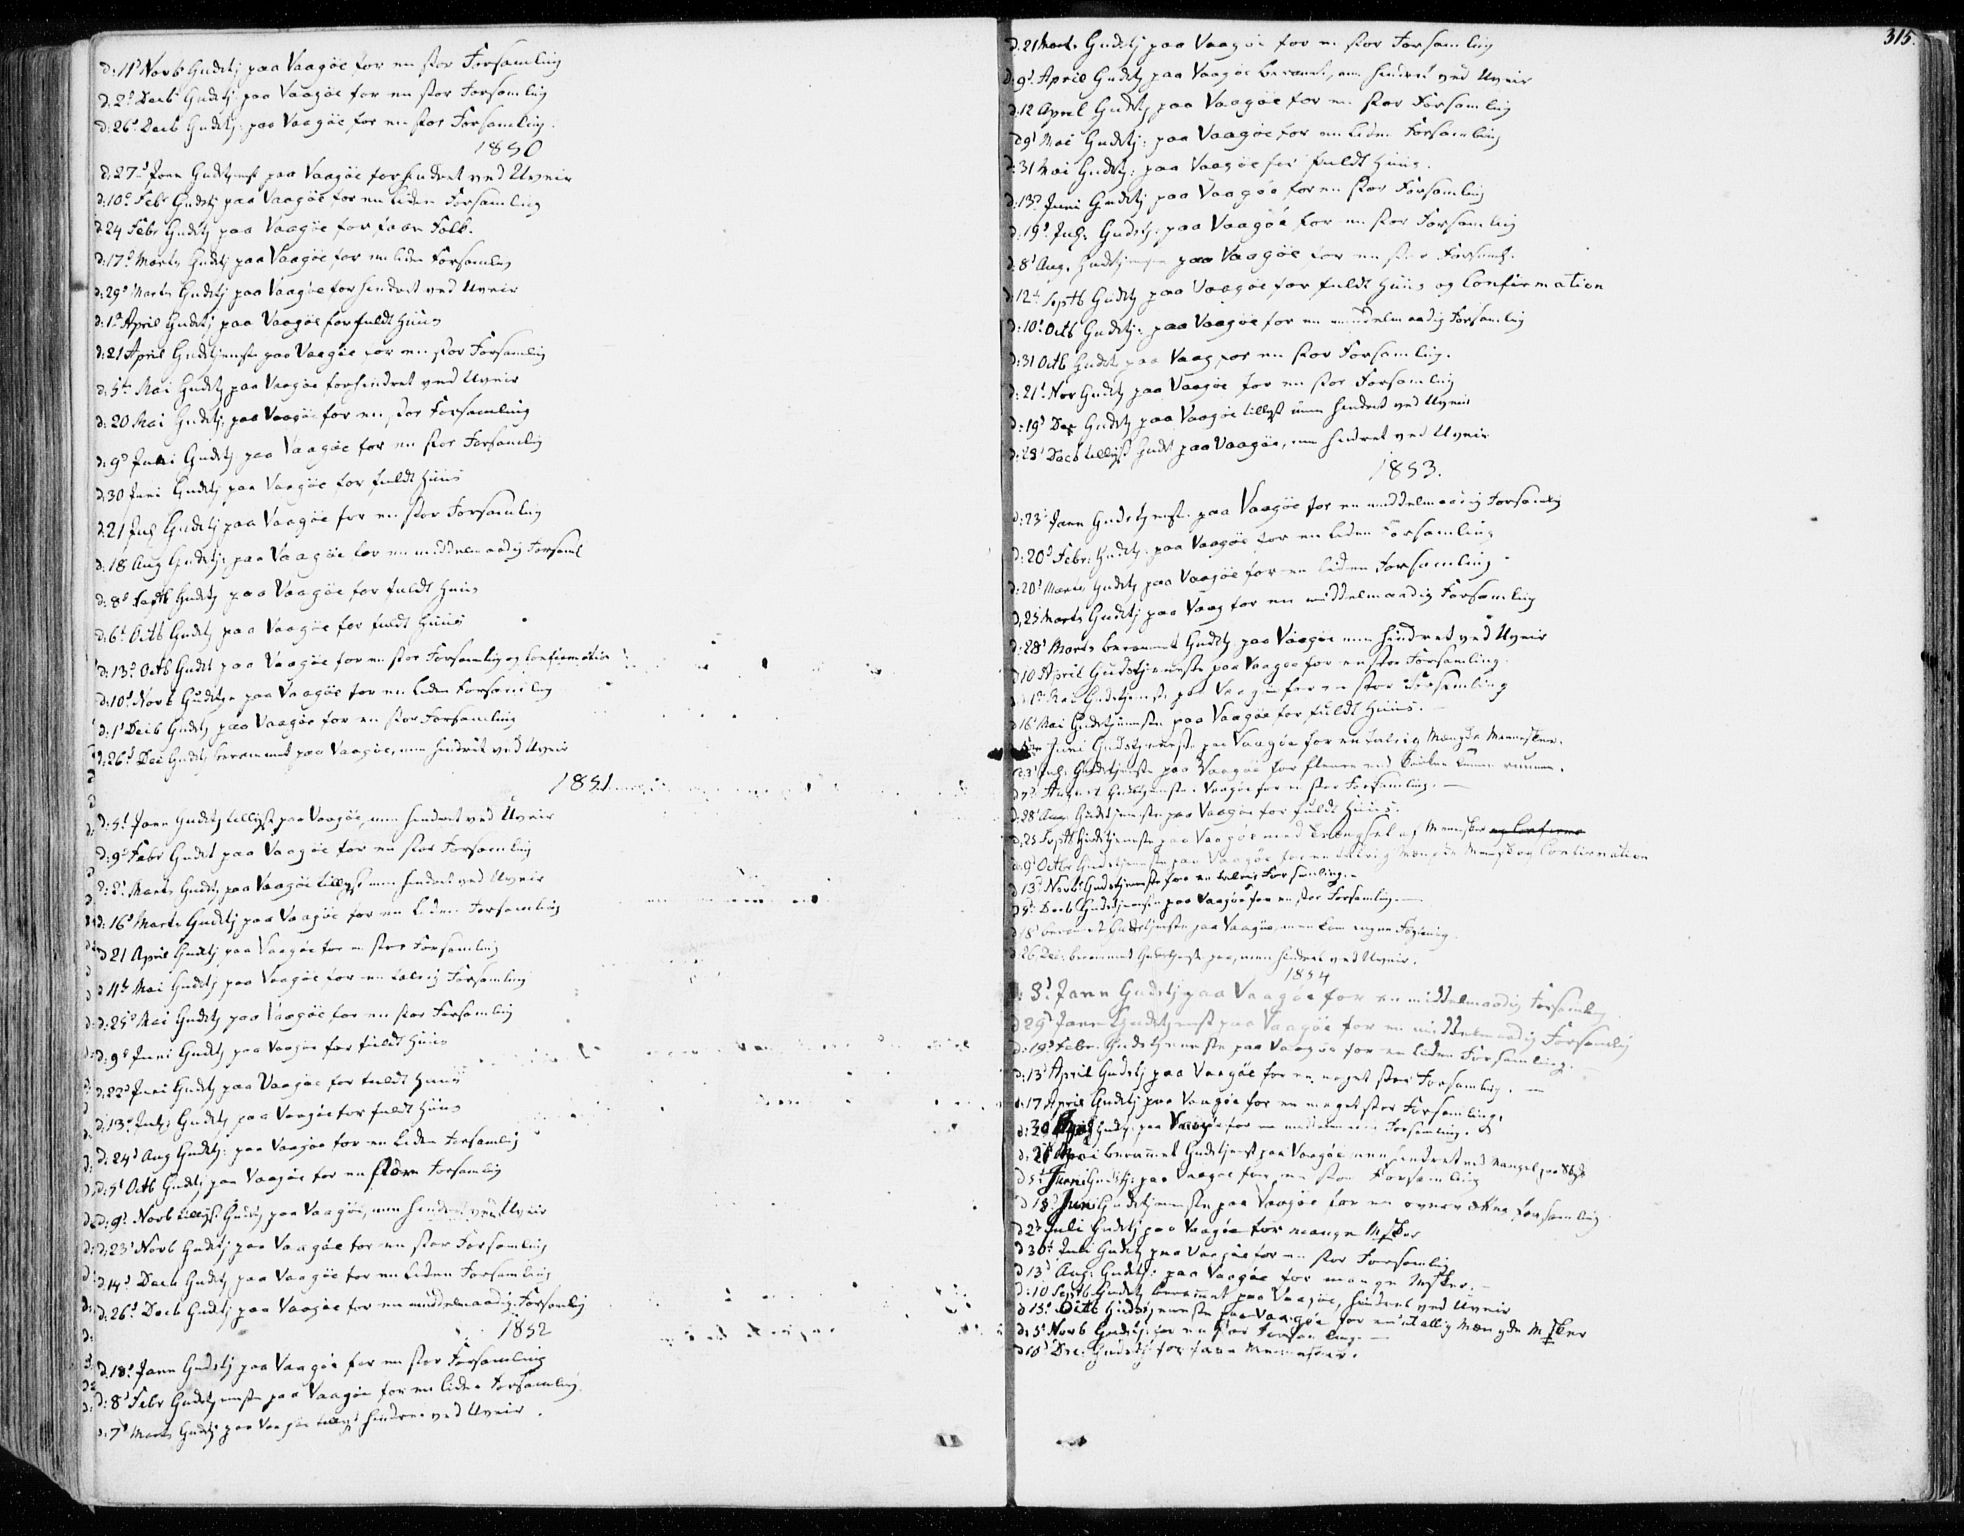 d: 11t Novb Gudstj paa Vaagöe for en stor Forsamling
d. 2d Decb Gudstj paa Vaagöe for en stor Forsamling
d: 26d Decb Gudstj. paa Vaagöe for en stor Forsamling.
1850
d: 27d Jann Gudstjenst paa Vaagöe forhindret ved Uveir
d: 10d Febr Gudstj paa Vaagöe for en liden Forsamling
d 24 Febr Gudstj paa Vaagöe for faae Folk.
d: 17d Marts Gudstj paa Vaagöe for en liden Forsamling
d: 29d Marts Gudstj paa Vaagöe forhindret ved Uveir
d: 1d April Gudstj paa Vaagöe for fuldt Huus
d: 21 April Gudstjenste paa Vaagöe for en stor Forsamling
d: 5te Mai Gudstj paa Vaagöe forhindret ved Uveir
d: 20 Mai Gudstj: paa Vaagöe for en stor Forsamling
d: 9d Juni Gudstj paa Vaagöe for en stor Forsamling
d: 30 Juni Gudstj paa Vaagöe for fuldt Huus
d: 21 July Gudstj paa Vaagöe for en stor Forsamling
d: 18 Aug Gudstj: paa Vaagöe for en middelmaadig Forsaml
d: 8d Septb Gudstj paa Vaagöe for fuldt Huus
d: 6t Octb Gudstj paa Vaagöe for fuldt Huus
d: 13d Octb Gudst paa Vaagöe for en stor Forsamling og Confirmation
d: 10d Novb Gudstje paa Vaagöe for en liden Forsamling
d: 1d Decb Gudstj paa Vaagöe for en stor Forsamling
d: 26d Dec Gudstj berammet paa Vaagöe, men hindret ved Uveir
1851
d: 5t Jann Gudstj tillyst paa Vaagöe, men hindret ved Uveir
d: 9d Febr Gudst paa Vaagöe for en stor Forsamling
d: 2d Marts Gudstj paa Vaagöe tillyst men hindret ved Uveir
d: 16d Marts Gudstj paa Vaagöe for en liden Forsamling
d 21 April Gudstj paa Vaagöe for en stor Forsamling
d 4de Mai Gudstj paa Vaagöe for en talrig Forsamling
d: 25d Mai Gudstj paa Vaagöe for en stor Forsamling
d: 9d Juni Gudstj paa Vaagöe for fuldt Huus
d: 22d Juni Gudstj paa Vaagöe for fuldt Huus
d: 13d July Gudstj paa Vaagöe for fuldt Huus
d: 24d Aug Gudstj: paa Vaagöe for en liden Forsamling
d: 5t Octb Gudstj paa Vaagöe for en større Forsamling
d: 9d Novb tillyst Gudstj paa Vaagöe, men hindret ved Uveir
d: 23d Novb Gudstj paa Vaagöe for en stor Forsamling
d 14d Decb Gudstj paa Vaagöe for en liden Forsamling
d: 26d Decb Gudstj paa Vaagöe for en middelmaadig Forsamling
1852
d. 18d Jann Gudstj paa Vaagöe for en stor Forsamling
d: 8d Febr Gudstjenste paa Vaagöe for en liden Forsamling
d: 7d Marts Gudstj paa Vaagöe tillyst hindret ved Uveir.
315.
d. 21 Marts Gudstj paa Vaagöe for en stor Forsamling
d: 9d April Gudstj paa Vaagöe berammet, men hindret ved Uveir
d. 12 April Gudstj paa Vaagöe for en stor Forsamling
d 9d Mai Gudstj: paa Vaagöe for en liden Forsamling
d: 31 Mai Gudstj: paa Vaagöe for fuldt Huus.
d: 13d Juni Gudstj paa Vaagöe for en stor Forsamling
d: 19d July Gudstj: paa Vaagöe for en stor Forsamling
d: 8d Aug. Gudstjensten paa Vaagöe for en stor Forsaml.
d: 12te Septb Gudstj paa Vaagöe for fuldt Huus og Confirmation
d: 10d Octb Gudstj: paa Vaagöe for en middelmaadig Forsamling
d: 31 Octb Gudst paa Vaag for en stor Forsamling.
d: 21d Nov Gudstj paa Vaagöe for en stor Forsamling
d: 19d Dec Gudstj paa Vaagöe tillyst men hindret ved Uveir
d: 28d Decb tillyst Gudst paa Vaagöe, men hindret ved Uveir
1853.
d: 23d Jann Gudstjenste paa Vaagöe for en middelmaadig Forsamling
d: 20d Febr: Gudstj: paa Vaagöe for en liden Forsamling
d: 20d Marts Gudstj paa Vaagöe for en liden Forsamling
d. 25 Marts Gudstj paa Vaag for en middelmaadig Forsamling
d: 28d Marts berammet Gudstj paa Vaagöe men hindret ved Uveir
d 10 April Gudstjeneste paa Vaagöe for en stor Forsamling.
d 1d Mai Gudstjenste paa Vaagöe for en stor Forsamling
d 16d Mai Gudstjenesten paa Vaagöe for fuldt Huus. —
Juni Gudstjeneste paa Vaagöe for en talrig Mængde Mennesker.
d: 3d July Gudstjenste paa Vaagöe for flere end Kirken kunne rumme.
d 7d August Gudstjenste Vaagöe for en stor Forsamling. —
d. 28d Aug. Gudstjensten paa Vaagöe for fuldt Huus.
d. 25 Septb Gudstjeneste paa Vaagöe med Trængsel af Mennesker og Confirma
d: 9d Octbr Gudstjensten paa Vaagöe for en talrig Mængde Mennesker og Confirmation
d 13d Novbr Gudstjenste for en talrig Forsamling. —
d 4d Decb Gudstjensten paa Vaagöe for en stor Forsamling. —
d 18d berammet Gudstjensten paa Vaagöe, men kom ingen
d 26 Dec: berammet Gudstjenste paa, men hindret ved Uveir.
1854
d: 8d Jann Gudstj paa Vaagöe for en middelmaadig Forsamling
d 29d Jann Gudstjenst paa Vaagöe for en middelmaadig Forsamling
d: 19d Febr: Gudstjeneste paa Vaagöe for en liden Forsamling. —
d: 13d April Gudstj paa Vaagöe for en noget stor Forsamling. —
d: 17 April Gudstj paa Vaagöe for en meget stor Forsamling.
d: 30 April Gudstj: paa Vaagöe for en middelmaadig Forsamling.
d: 21 Mai berammet Gudstjenst paa Vaagöe men hindret ved Mangel paa
d 5t Juni Gudstj: paa Vaagöe for en stor Forsamling
d 18d Juni Gudstjensten paa Vaagöe for en overvættes Forsamling
d 2d Juli Gudstj paa Vaagöe for mange Msker
d 30d Juli Gudstj paa Vaagöe for en stor Forsamling
d 13d Aug: Gudstj: paa Vaagöe for mange Msker. —
d: 10 Septb Gudstj berammet paa Vaagöe, hindret ved Uveir
d 15d Octb Gudstjeneste paa Vaagöe for en utallig Mængde Msker
d: 5t Novb Gudstj: for en stor Forsamling. —
d 10d Dec: Gudstj for faae Mennesker.